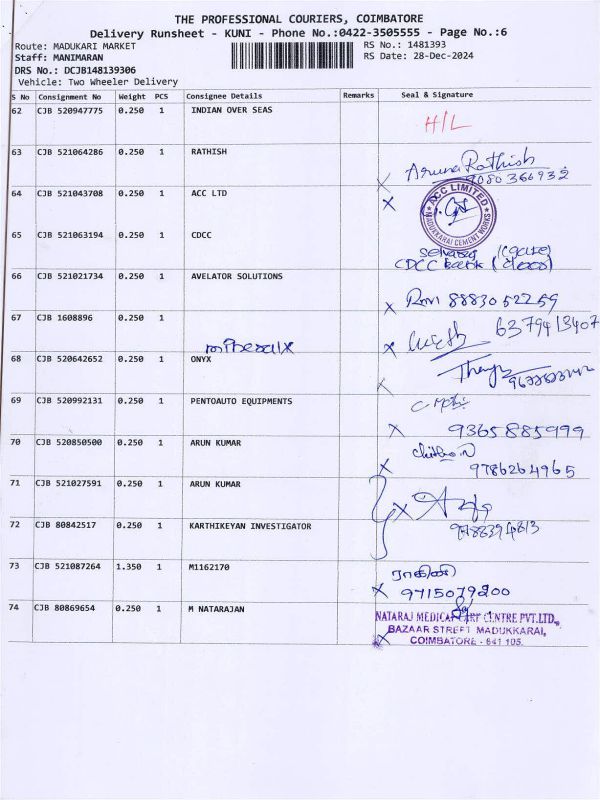 THE PROFESSIONAL COURIERS, COIMBATORE
Delivery Runsheet - KUNI - Phone No.:0422-3505555 - Page No.:6
Route: MADUKARI MARKET RS No.: 1481393
Staff: MANIMARAN RS Date: 28-Dec-2024
DRS No.: DCJB148139306
Vehicle: Two Wheeler Delivery
S No Consignment No Weight PCS Consignee Details Remarks Seal & Signature
62 CJB 520947775 0.250 1 INDIAN OVER SEAS H/L
63 CJB 521064286 0.250 1 RATHISH Aruna Rathish
9080366932
64 CJB 521043708 0.250 1 ACC LTD ACC LIMITED MADUKKARAI CEMENT WORKS
65 CJB 521063194 0.250 1 CDCC
CDCC bank
66 CJB 521021734 0.250 1 AVELATOR SOLUTIONS 8883052259
67 CJB 1608896 0.250 1 6379413407
68 CJB 520642652 0.250 1 ONYX
69 CJB 520992131 0.250 1 PENTOAUTO EQUIPMENTS 9365885999
70 CJB 520850500 0.250 1 ARUN KUMAR 9786264965
71 CJB 521027591 0.250 1 ARUN KUMAR
72 CJB 80842517 0.250 1 KARTHIKEYAN INVESTIGATOR
73 CJB 521087264 1.350 1 M1162170 ராகினி
9715079200
74 CJB 80869654 0.250 1 M NATARAJAN NATARAJ MEDICAL CENTRE PVT.LTD.,
BAZAAR STREET MADUKKARAI,
COIMBATORE - 641 105.